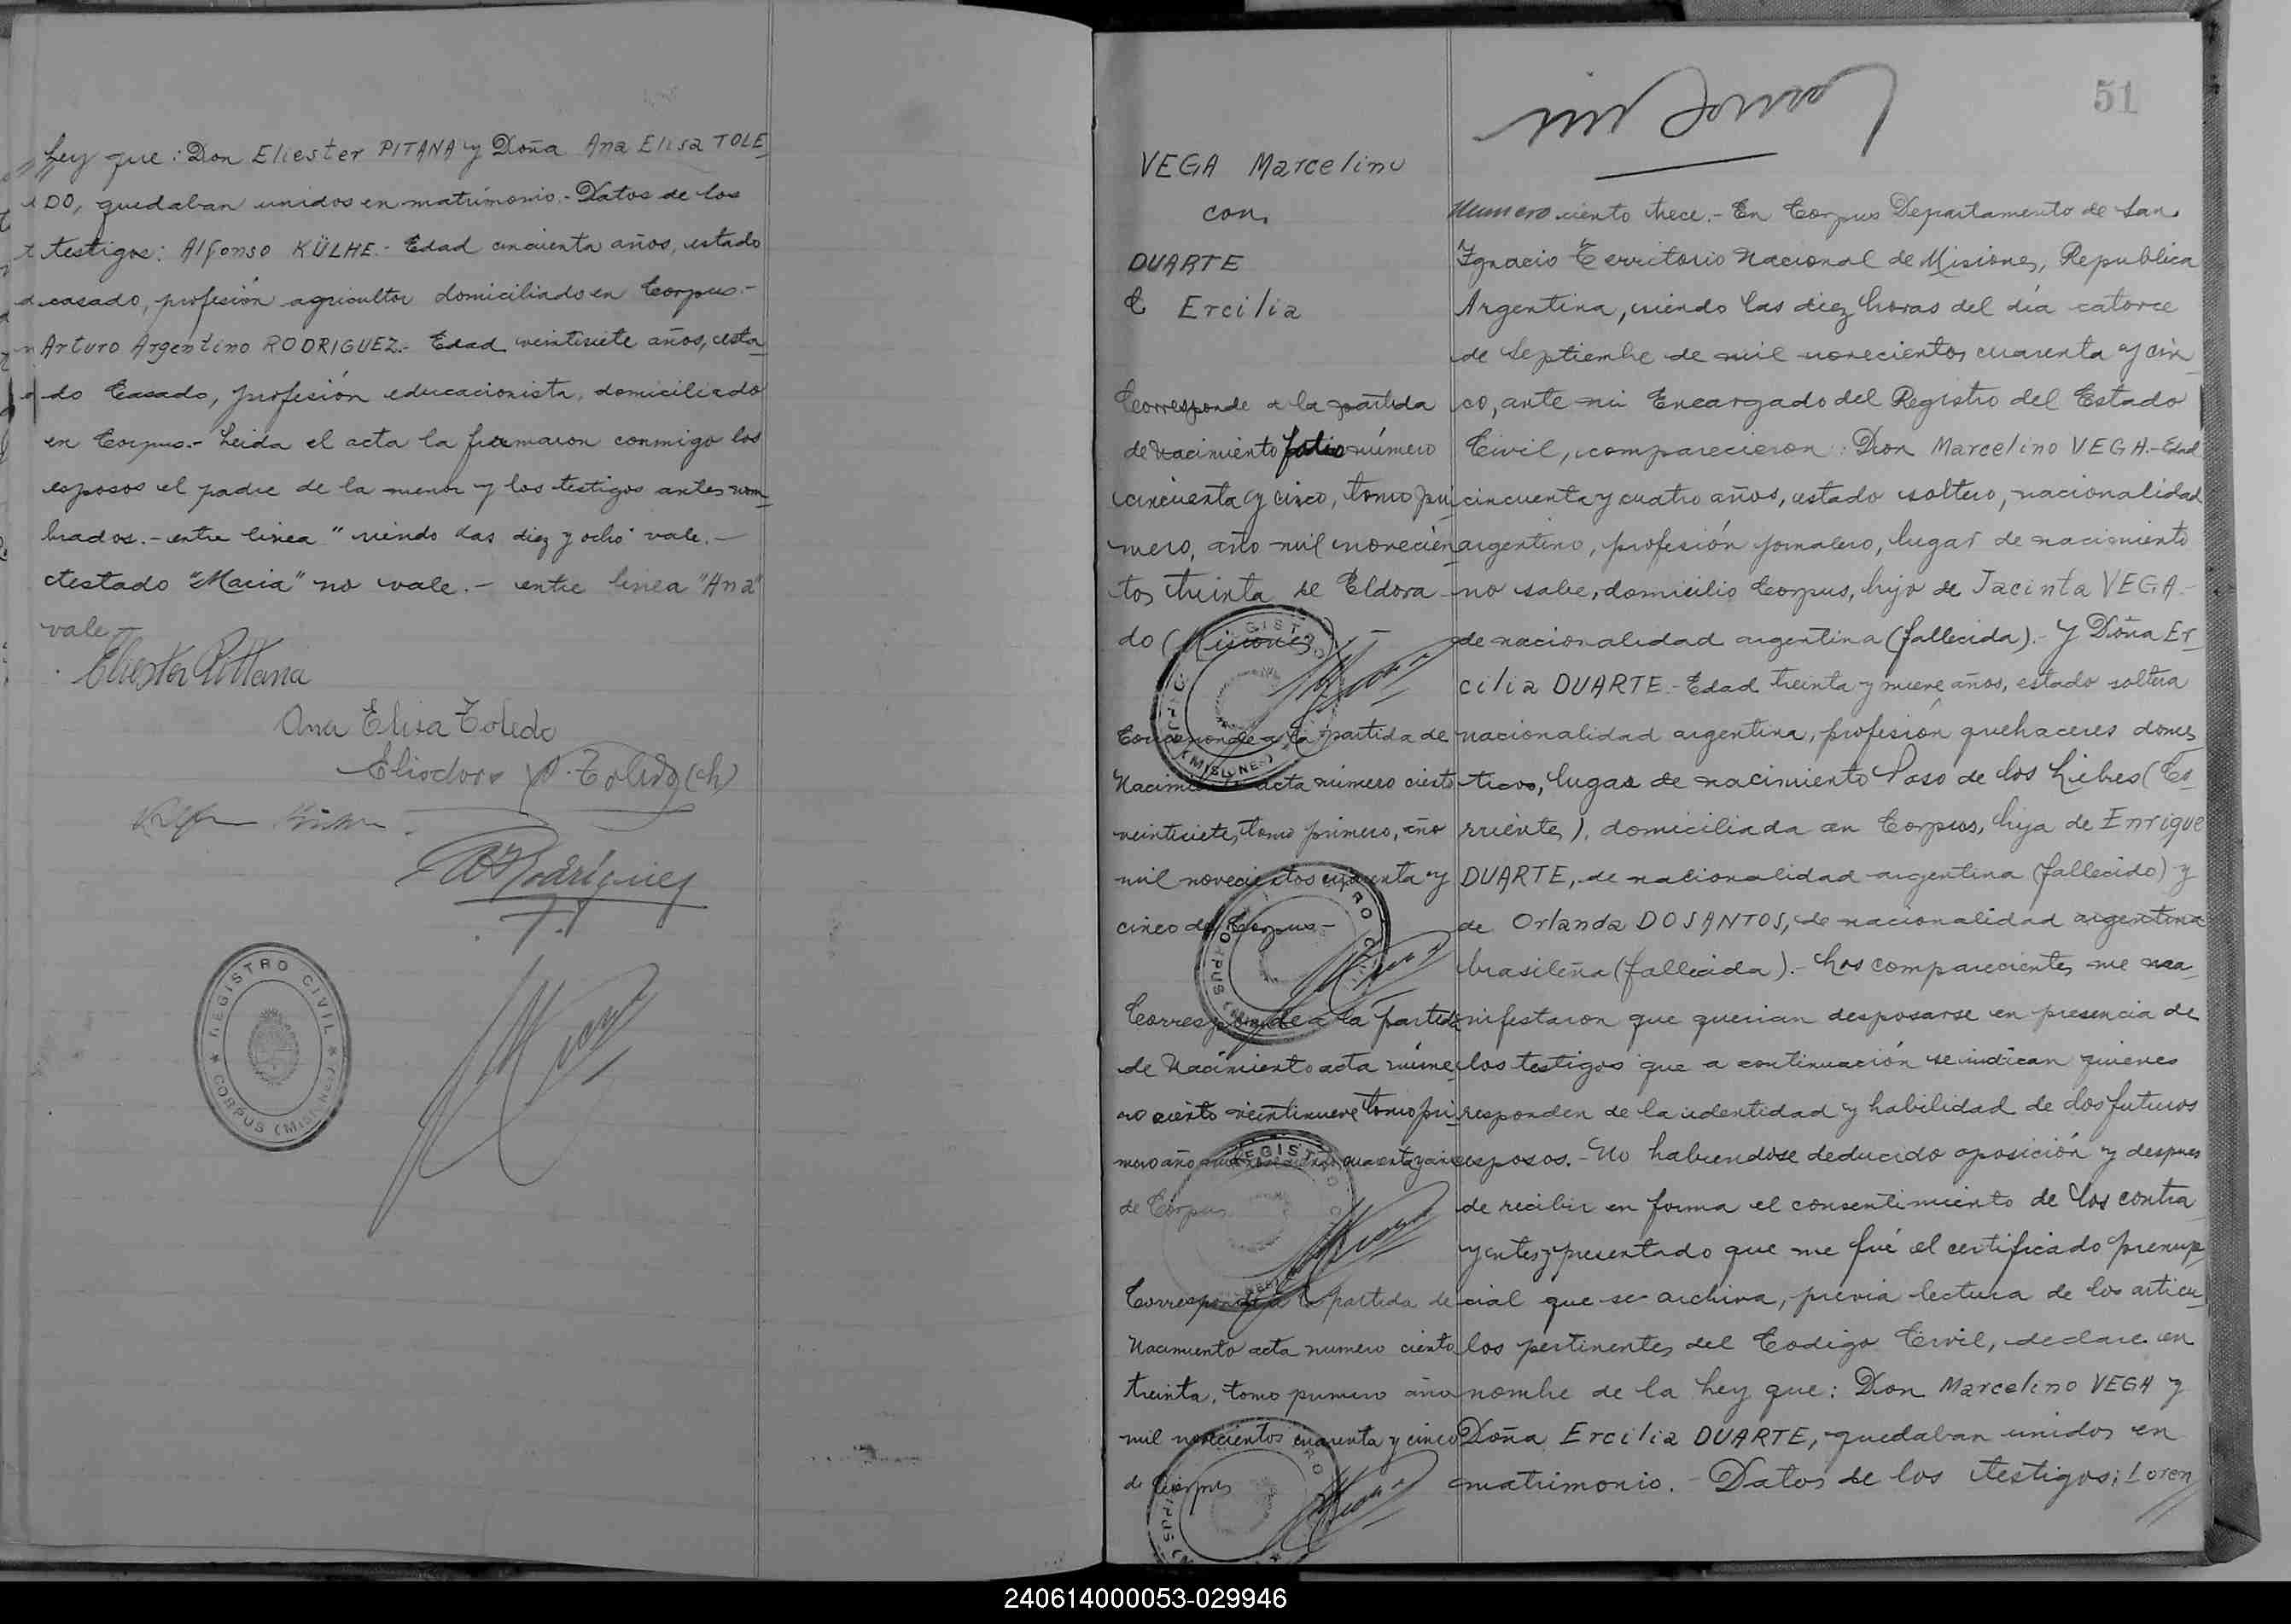 Ley que: Don Eliester PITANA y Doña Ana Elisa TOLE
DO, quedaban unidos en matrimonio.- Datos de los
testigos: Alfonso KÜLHE.- Edad cincuenta años, estado
casado, profesión agricultor domiciliado en Corpus.-
Arturo Argentino RODRIGUEZ.- Edad veintisiete años, esta
do Casado, profesión educacionista, domiciliado
en Corpus.- Leida el acta la firmaron conmigo los
esposos el padre de la menor y los testigos antes nom
brados.- entre linea "siendo las diez y ocho" vale.-
testado "Maria" no vale.- entre linea "Ana"
vale.-
Eliester Pittana
Ana Elisa Toledo
Eliodoro Toledo (h)
Rodríguez
REGISTRO CIVIL
CORPUS (MISIONES)
51
VEGA Marcelino
con
DUARTE
Ercilia
Corresponde a la partida
de Nacimiento folio número
cincuenta y cinco, tomo pri
mero, año mil novecien
tos treinta de Eldora
do (Misiones)
Corresponde a la partida de
Nacimiento acta número ciento
veintisiete, tomo primero, año
mil novecientos cuarenta y
cinco de Corpus.-
Corresponde a la partida
de Nacimiento acta núme
ro ciento veintinueve tomo pri
mero año mil novecientos cuarenta y cinco
de Corpus
Corresponde a la partida de
Nacimiento acta numero ciento
treinta, tomo primero año
mil novecientos cuarenta y cinco
de Corpus
Numero ciento trece.- En Corpus Departamento de San
Ignacio Territorio Nacional de Misiones, Republica
Argentina, siendo las diez horas del día catorce
de Septiembre de mil novecientos cuarenta y cin
co, ante mi Encargado del Registro del Estado
Civil, comparecieron: Don Marcelino VEGA.- Edad
cincuenta y cuatro años, estado soltero, nacionalidad
argentino, profesión jornalero, lugar de nacimiento
no sabe, domicilio Corpus, hijo de Jacinta VEGA.-
de nacionalidad argentina (fallecida).- Y Doña Er
cilia DUARTE.- Edad treinta y nueve años, estado soltera
nacionalidad argentina, profesión quehaceres domes
ticos, lugar de nacimiento Paso de los Libres (Co
rrientes), domiciliada en Corpus, hija de Enrique
DUARTE, de nacionalidad argentina (fallecido) y
de Orlanda DOSANTOS, de nacionalidad argentina
brasileña (fallecida).- Los comparecientes me ma
nifestaron que querian desposarse en presencia de
los testigos que a continuación se indican quienes
responden de la identidad y habilidad de los futuros
esposos.- No habiendose deducido oposición y despues
de recibir en forma el consentimiento de los contra
yentes y presentado que me fué el certificado prenup
cial que se archiva, previa lectura de los articu
los pertinentes del Codigo Civil, declare en
nombre de la Ley que: Don Marcelino VEGA y
Doña Ercilia DUARTE, quedaban unidos en
matrimonio.- Datos de los testigos: Loren
240614000053-029946